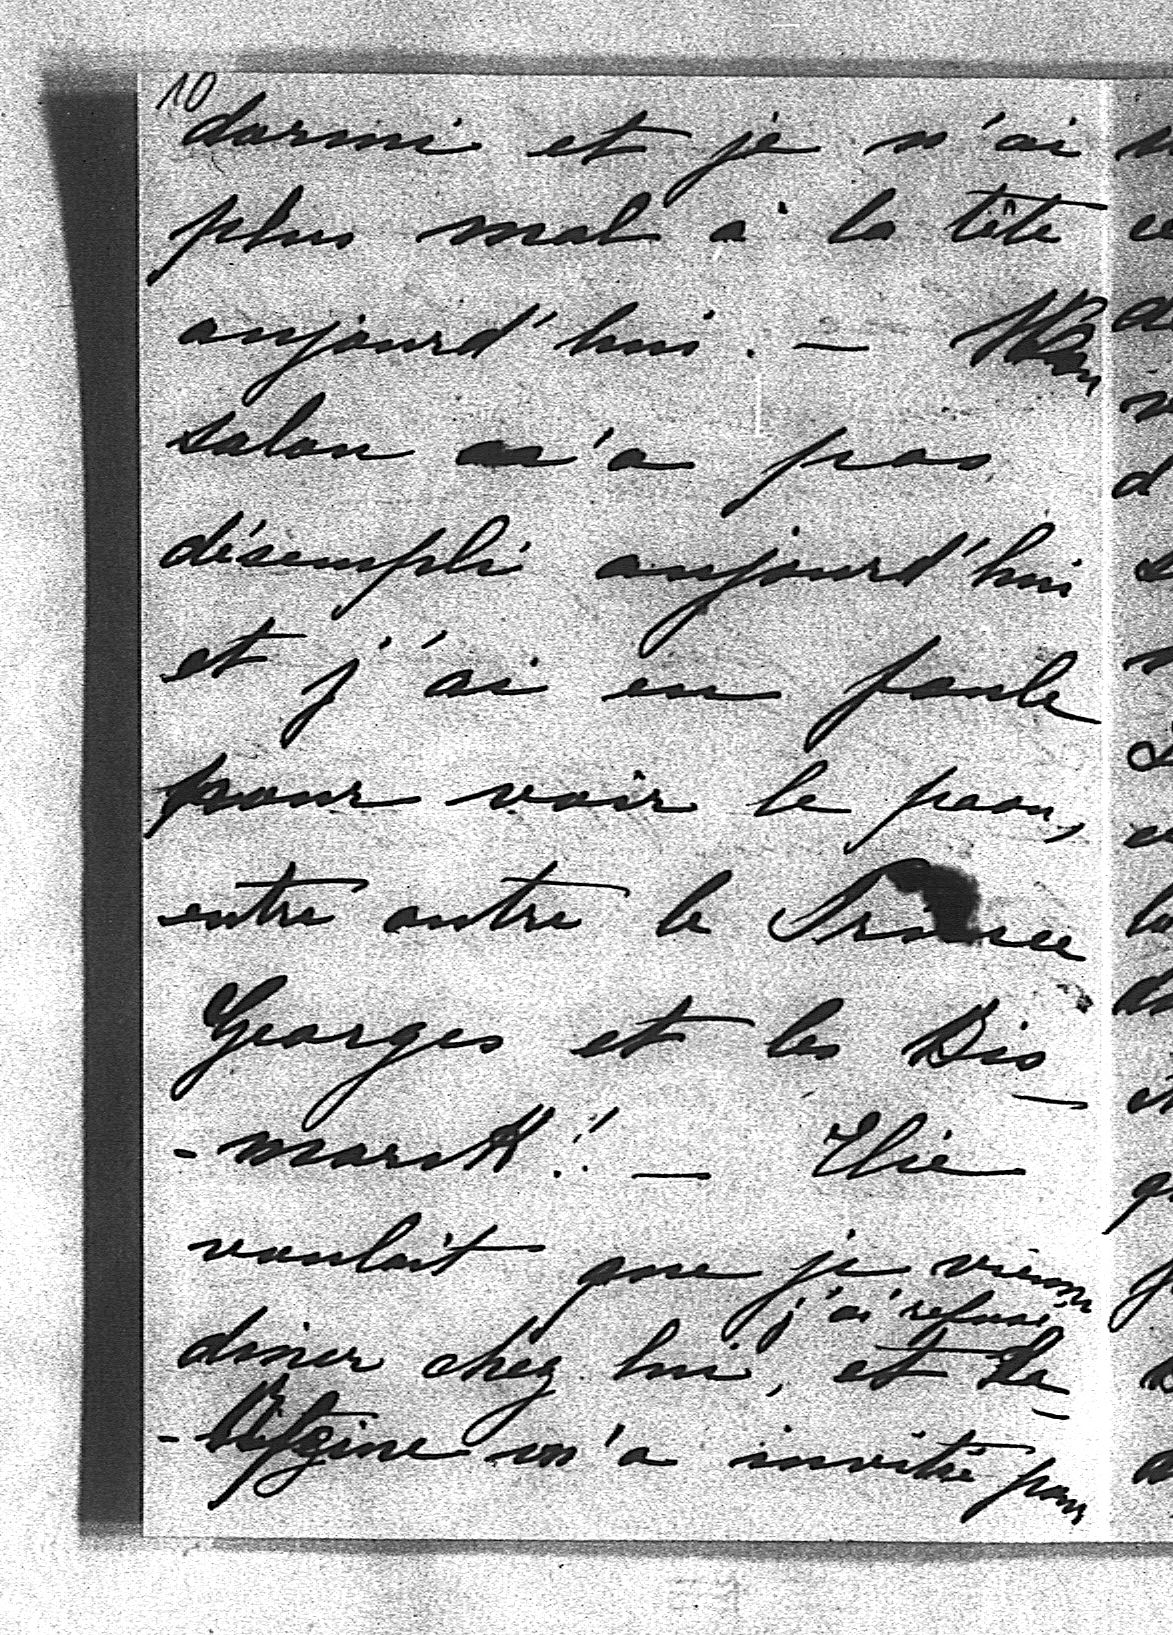 10
dormi et je n'ai
plus mal à la tête
aujourd'hui. — Mon
salon n'a pas
désempli aujourd'hui
et j'ai eu foule
pour voir le paon,
entre autre le Prince
Georges et les Bis-
-mark! — Elie
voulait que je vienne
j'ai refusé
diner chez lui, et
m'a invitée pour